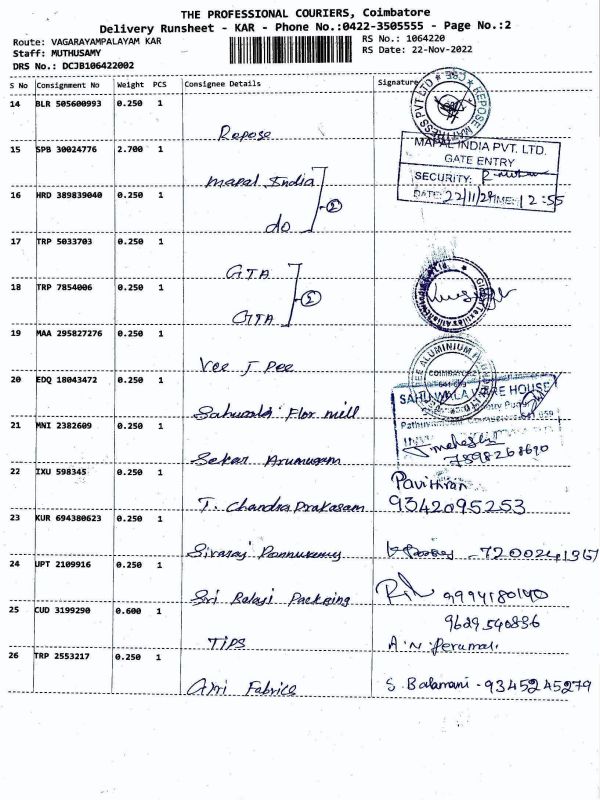 THE PROFESSIONAL COURIERS, Coimbatore
Delivery Runsheet - KAR - Phone No.:0422-3505555 - Page No.:2
Route: VAGARAYAMPALAYAM KAR
RS No.: 1064220
Staff: MUTHUSAMY
RS Date: 22-Nov-2022
DRS No.: DCJB106422002
S No Consignment No Weight PCS Consignee Details Signature
14 BLR 505600993 0.250 1 Repose
REPOSE MATTRESS PVT LTD
15 SPB 30024776 2.700 1 Mapal India
MAPAL INDIA PVT. LTD.
GATE ENTRY
SECURITY:
DATE: 22/11/2 TIME: 12:55
16 HRD 389839040 0.250 1 do
17 TRP 5033703 0.250 1 GTA
18 TRP 7854006 0.250 1 GTA
19 MAA 295827276 0.250 1 Vee J Pee
ALUMINIUM
COIMBATORE
20 EDQ 18043472 0.250 1 Sahuwala Flor mill
SAHUWALA WARE HOUSE
21 MNI 2382609 0.250 1 Sekar Arumugam
7598268690
22 IXU 598345 0.250 1 T. Chandra Prakasam
Pavithran
9342095253
23 KUR 694380623 0.250 1 Sivaraj Ponnusamy
24 UPT 2109916 0.250 1 Sri Balaji Packging
9994180140
25 CUD 3199290 0.600 1 TIPS
9629540836
A.N. Perumal
26 TRP 2553217 0.250 1 Giri Fabrice
S. Balamani - 9345245279